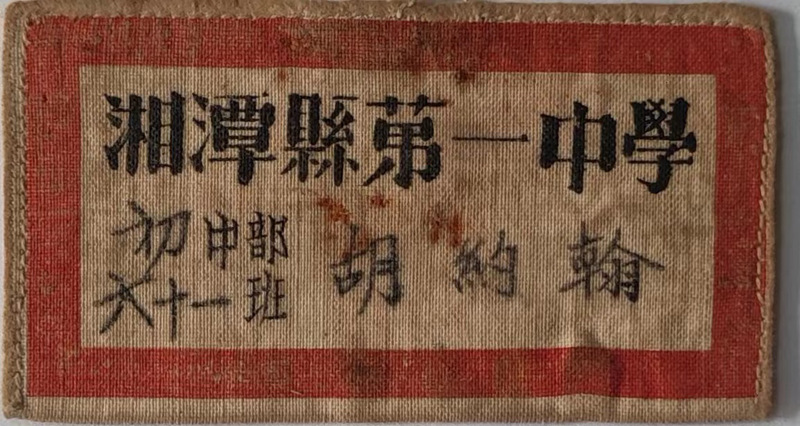 湘潭縣第一中學
初中部 胡約翰
六十一班